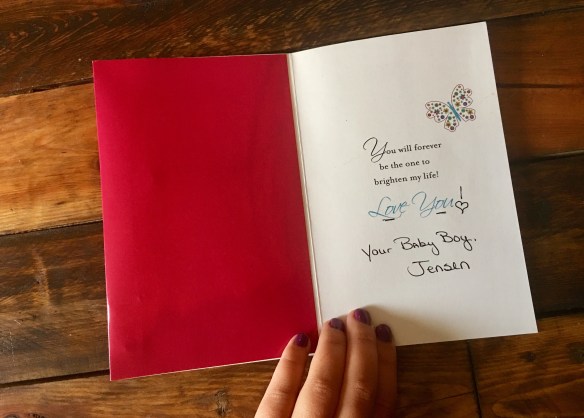 You will forever
be the one to
brighten my life!
Love You!
Your Baby Boy,
Jensen